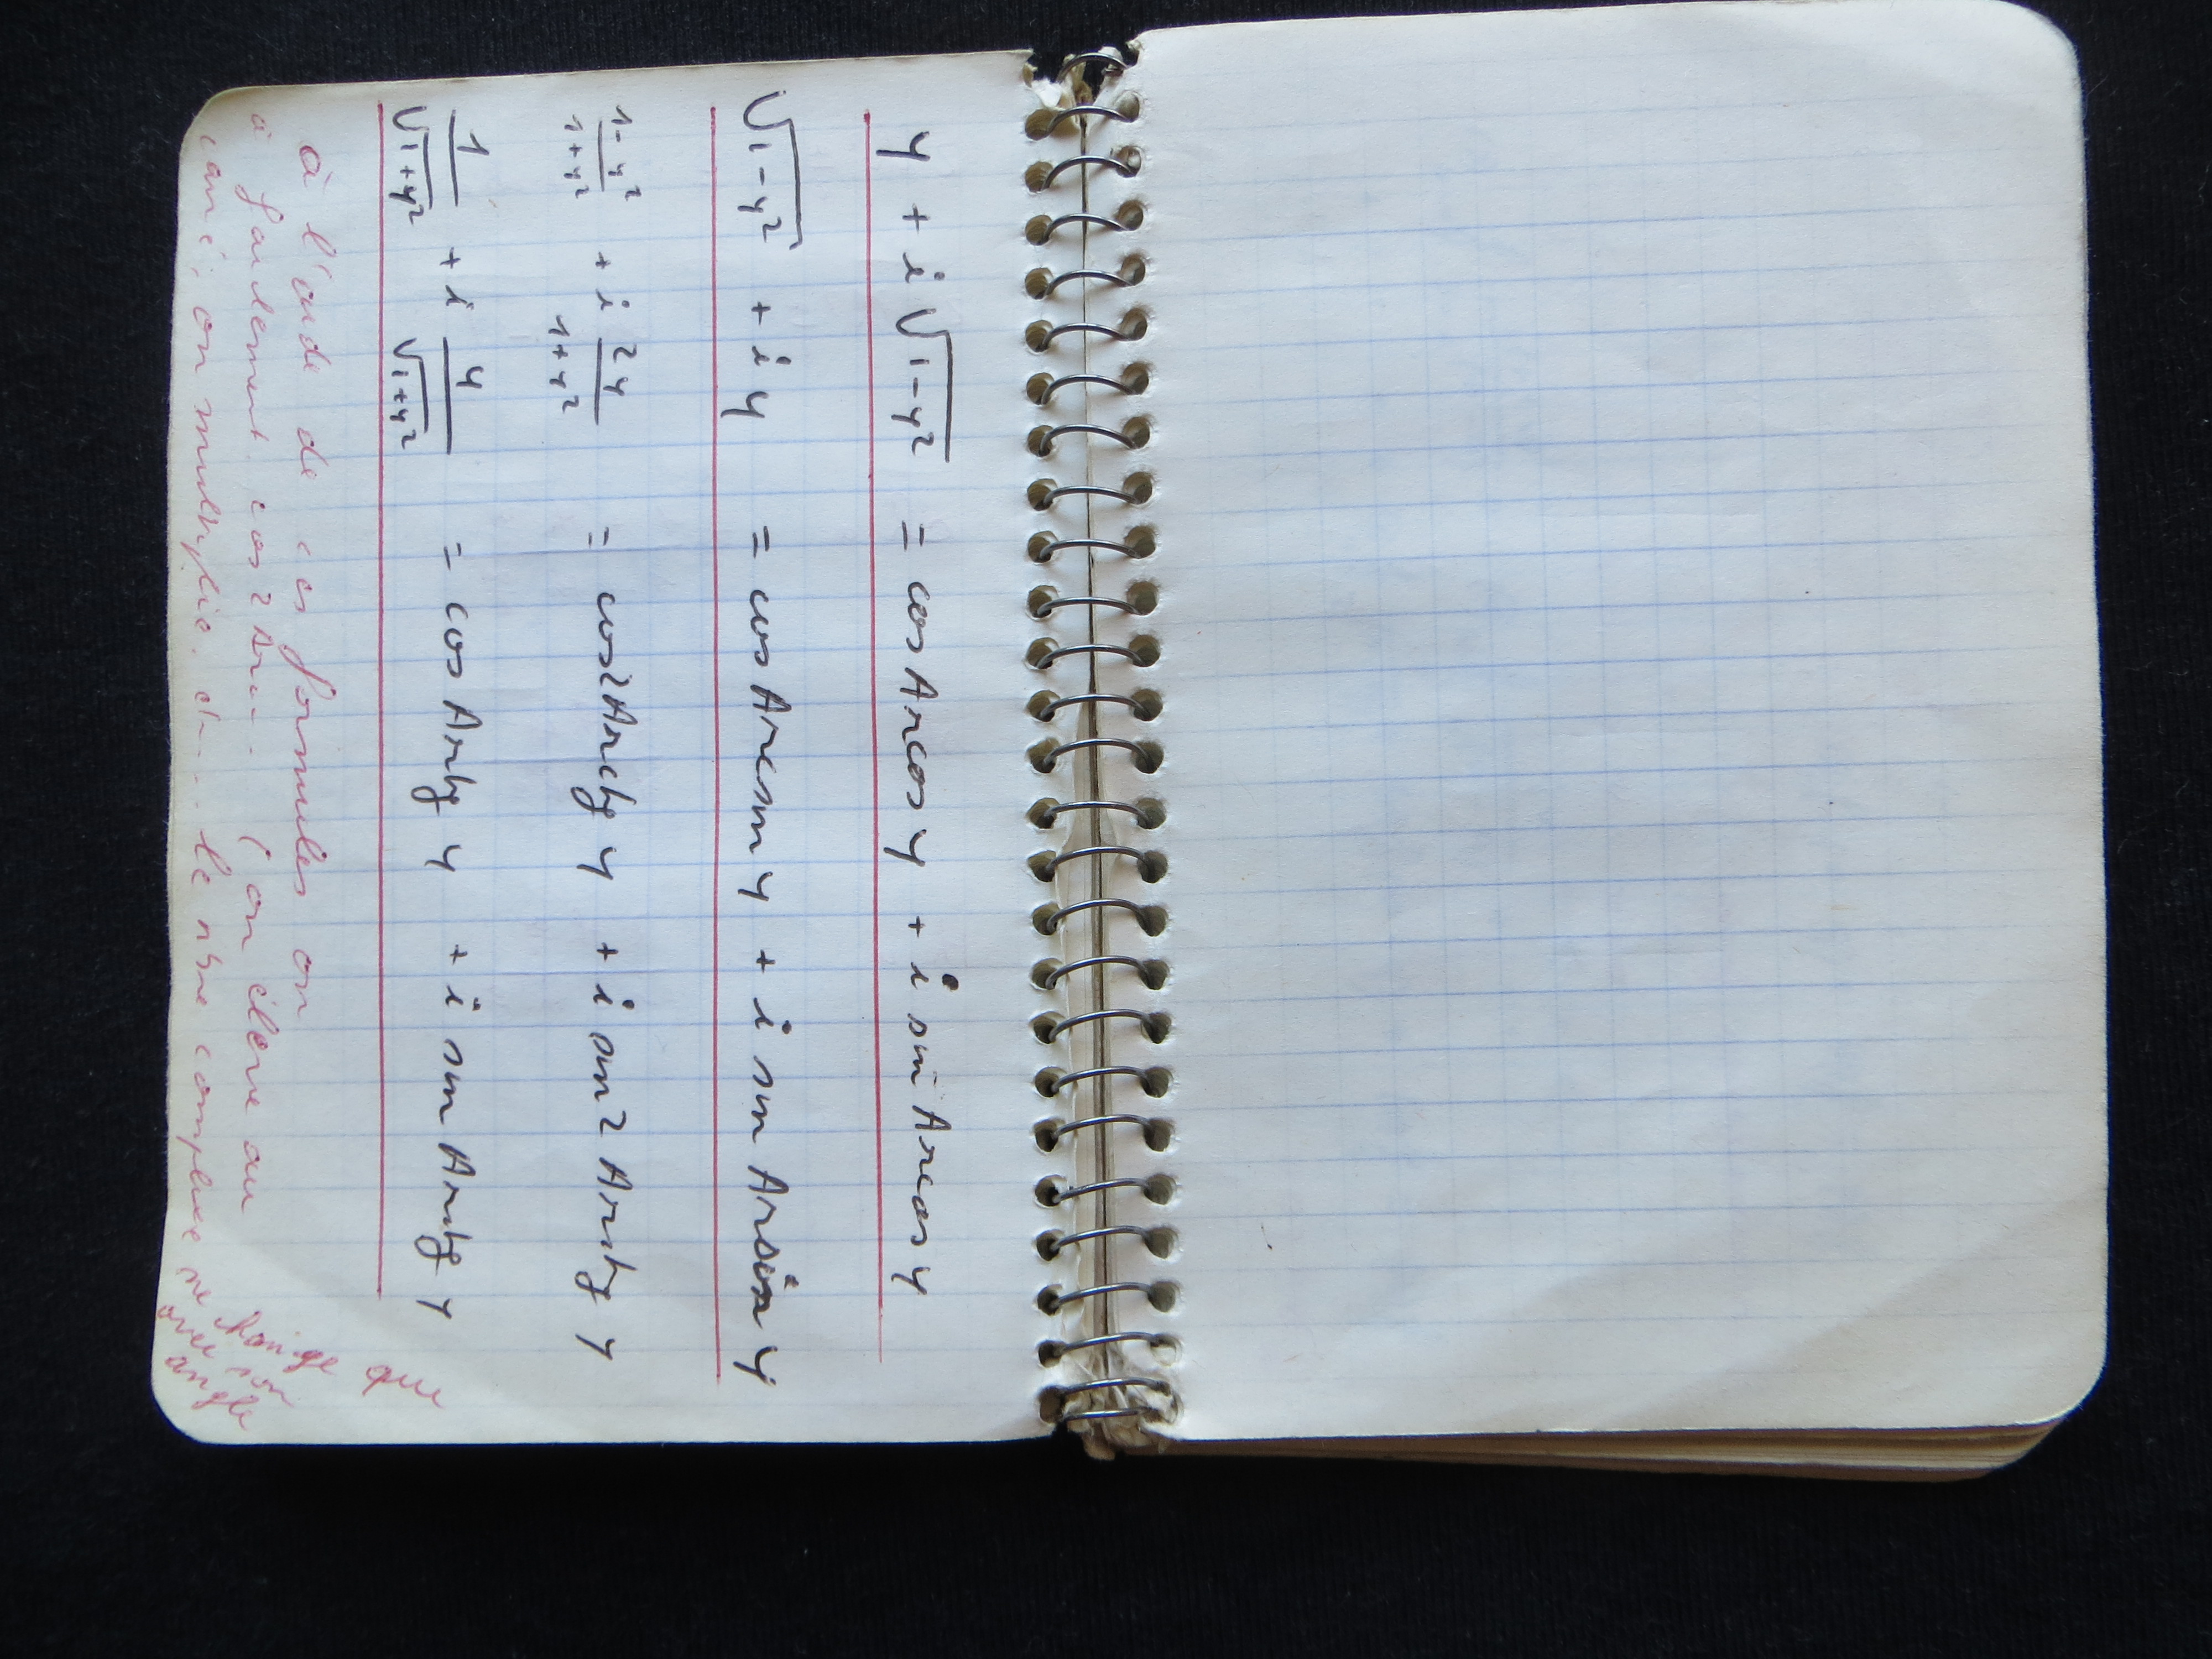 y + i √(1-y²) = cos Arcos y + i sin Arcos y
√(1-y²) + i y = cos Arcsin y + i sin Arcsin y
(1-y²)/(1+y²) + i 2y/(1+y²) = cos 2 Arctg y + i sin 2 Arctg y
1/√(1+y²) + i y/√(1+y²) = cos Arctg y + i sin Arctg y
à l'aide de ces formules on
a facilement cos 2 Arc... (on élève au
carré; on multiplie. etc... le nbre complexe ne change que
avec son
angle